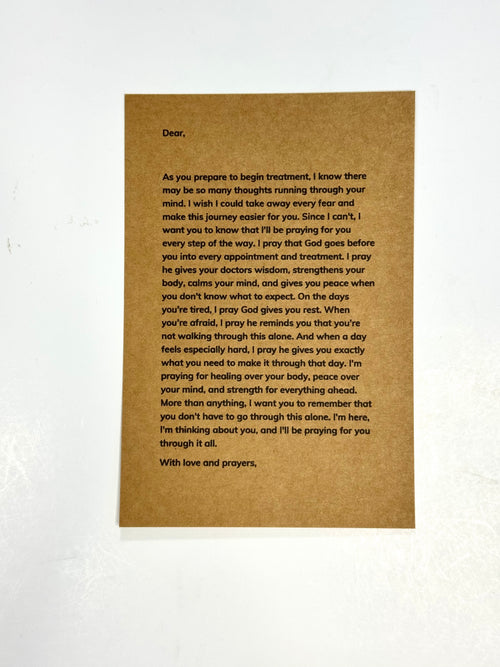 Dear,
As you prepare to begin treatment, I know there
may be so many thoughts running through your
mind. I wish I could take away every fear and
make this journey easier for you. Since I can't, I
want you to know that I'll be praying for you
every step of the way. I pray that God goes before
you into every appointment and treatment. I pray
he gives your doctors wisdom, strengthens your
body, calms your mind, and gives you peace when
you don't know what to expect. On the days
you're tired, I pray God gives you rest. When
you're afraid, I pray he reminds you that you're
not walking through this alone. And when a day
feels especially hard, I pray he gives you exactly
what you need to make it through that day. I'm
praying for healing over your body, peace over
your mind, and strength for everything ahead.
More than anything, I want you to remember that
you don't have to go through this alone. I'm here,
I'm thinking about you, and I'll be praying for you
through it all.
With love and prayers,